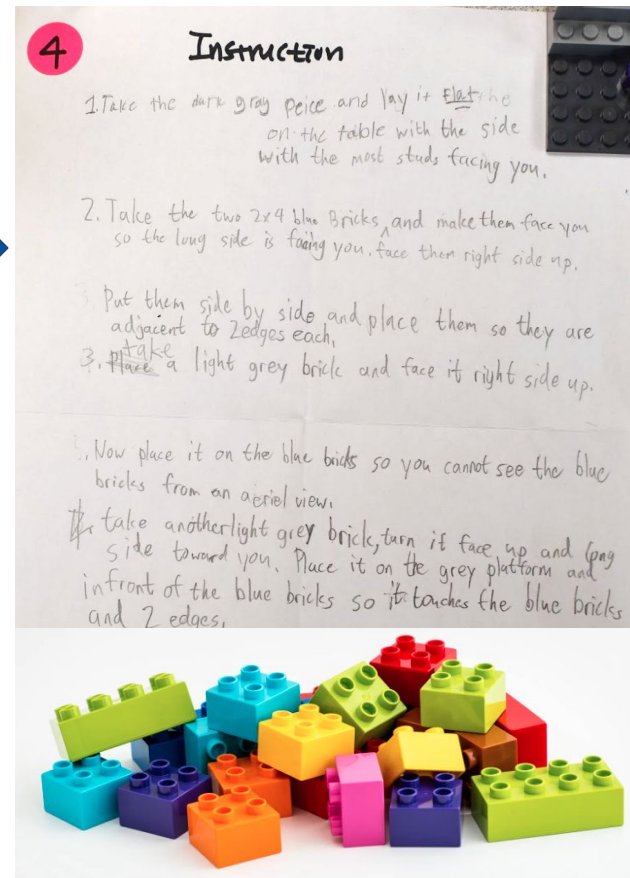 4
Instruction
1. Take the dark gray peice and lay it Flat
on the table with the side
with the most studs facing you.
2. Take the two 2x4 blue Bricks, and make them face you
so the long side is facing you. face them right side up.
Put them side by side and place them so they are
adjacent to 2edges each.
take
3. a light grey brick and face it right side up.
Now place it on the blue bricks so you cannot see the blue
bricks from an aeriel view.
take another light grey brick, turn it face up and long
side toward you. Place it on the grey platform and
infront of the blue bricks so it touches the blue bricks
and 2 edges.